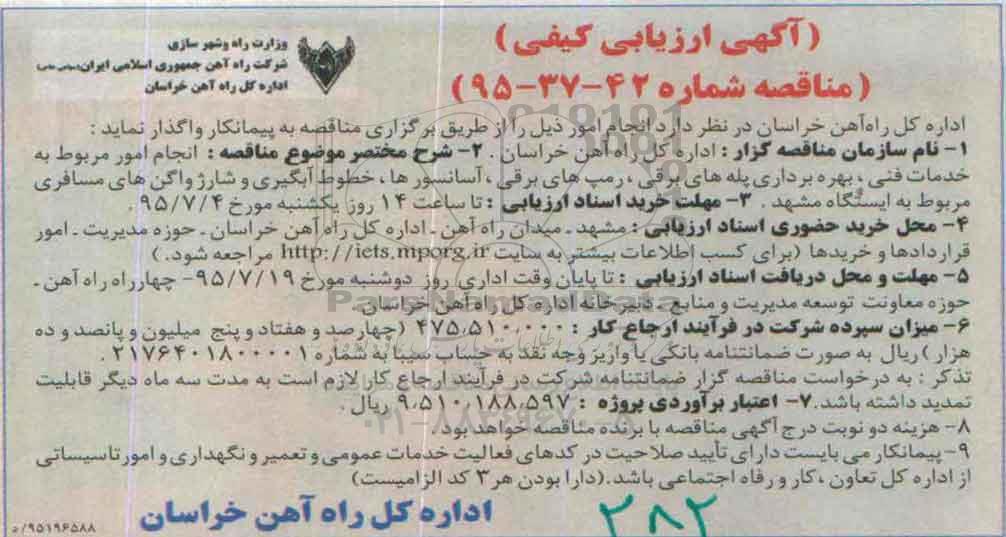 ( آگهی ارزیابی کیفی )
( مناقصه شماره ۴۲-۳۷-۹۵ )
وزارت راه وشهر سازی
شرکت راه آهن جمهوری اسلامی ایران(سهامی خاص)
اداره کل راه آهن خراسان
اداره کل راه‌آهن خراسان در نظر دارد انجام امور ذیل را از طریق برگزاری مناقصه به پیمانکار واگذار نماید :
۱- نام سازمان مناقصه گزار : اداره کل راه آهن خراسان . ۲- شرح مختصر موضوع مناقصه : انجام امور مربوط به
خدمات فنی ، بهره برداری پله های برقی ، رمپ های برقی ، آسانسور ها ، خطوط آبگیری و شارژ واگن های مسافری
مربوط به ایستگاه مشهد . ۳- مهلت خرید اسناد ارزیابی : تا ساعت ۱۴ روز یکشنبه مورخ ۹۵/۷/۴ .
۴- محل خرید حضوری اسناد ارزیابی : مشهد ـ میدان راه آهن ـ اداره کل راه آهن خراسان ـ حوزه مدیریت ـ امور
قراردادها و خریدها (برای کسب اطلاعات بیشتر به سایت http://iets.mporg.ir مراجعه شود. )
۵- مهلت و محل دریافت اسناد ارزیابی : تا پایان وقت اداری روز دوشنبه مورخ ۹۵/۷/۱۹- چهارراه راه آهن ـ
حوزه معاونت توسعه مدیریت و منابع ـ دبیرخانه اداره کل راه آهن خراسان
۶- میزان سپرده شرکت در فرآیند ارجاع کار : ۴۷۵،۵۱۰،۰۰۰ (چهارصد و هفتاد و پنج میلیون و پانصد و ده
هزار ) ریال به صورت ضمانتنامه بانکی یا واریز وجه نقد به حساب سیبا به شماره ۲۱۷۶۴۰۱۸۰۰۰۰۱ .
تذکر : به درخواست مناقصه گزار ضمانتنامه شرکت در فرآیند ارجاع کار لازم است به مدت سه ماه دیگر قابلیت
تمدید داشته باشد.۷- اعتبار برآوردی پروژه : ۹،۵۱۰،۱۸۸،۵۹۷ ریال .
۸- هزینه دو نوبت درج آگهی مناقصه با برنده مناقصه خواهد بود.
۹- پیمانکار می بایست دارای تأیید صلاحیت در کدهای فعالیت خدمات عمومی و تعمیر و نگهداری و امور تاسیساتی
از اداره کل تعاون ، کار و رفاه اجتماعی باشد.(دارا بودن هر ۳ کد الزامیست)
اداره کل راه آهن خراسان
۲۸۲
۹۵۱۹۶۵۸۸/ه
ParsNamadData